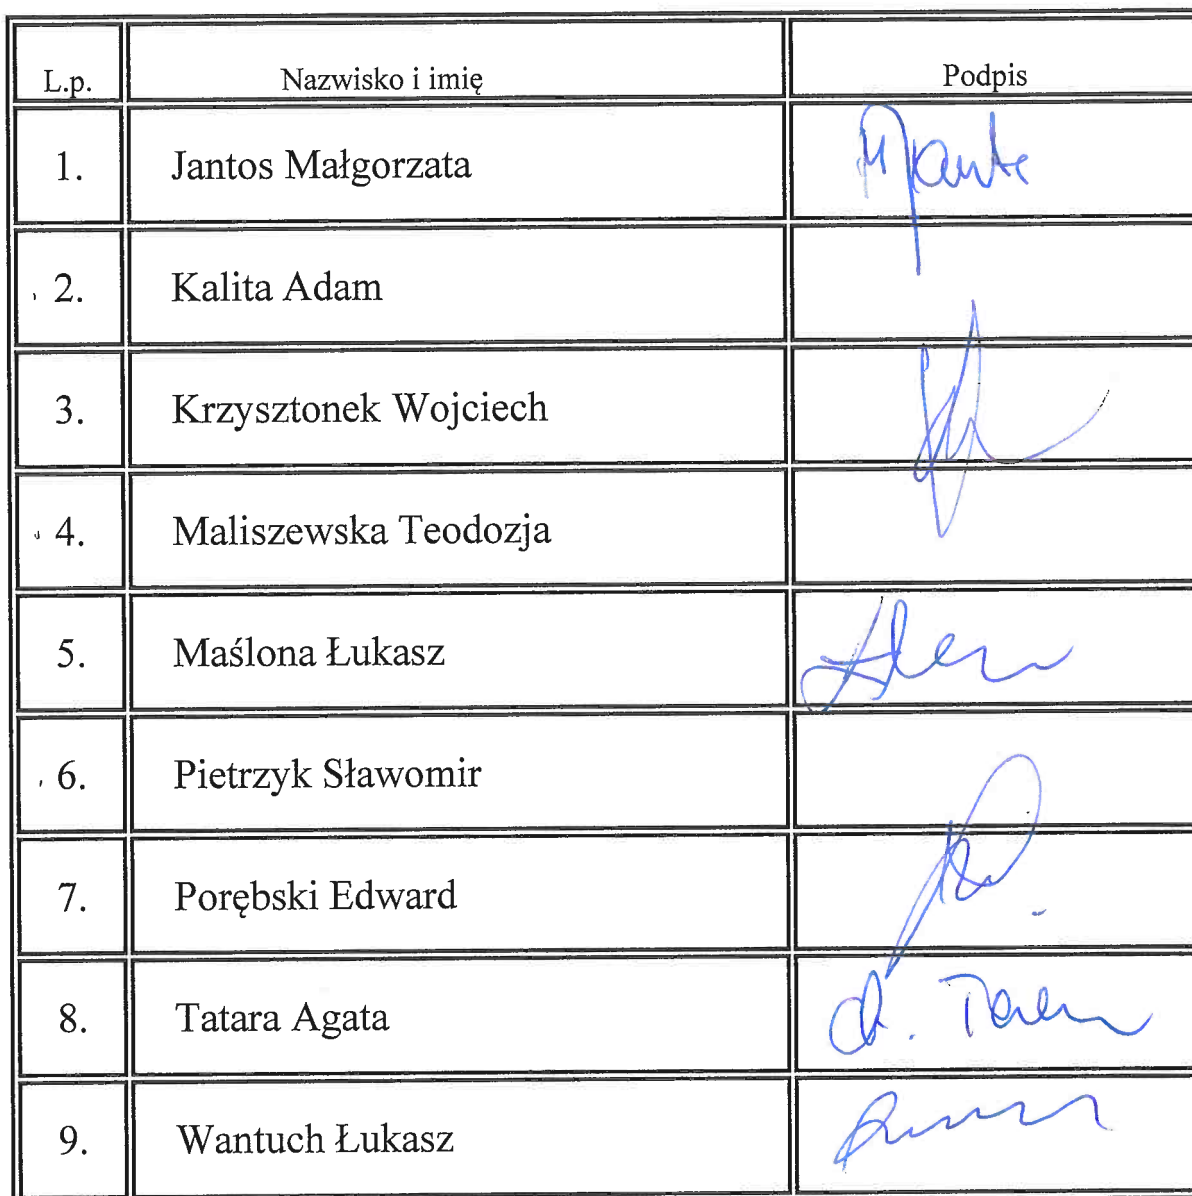 L.p. Nazwisko i imię Podpis
1. Jantos Małgorzata
2. Kalita Adam
3. Krzysztonek Wojciech
4. Maliszewska Teodozja
5. Maślona Łukasz
6. Pietrzyk Sławomir
7. Porębski Edward
8. Tatara Agata
9. Wantuch Łukasz